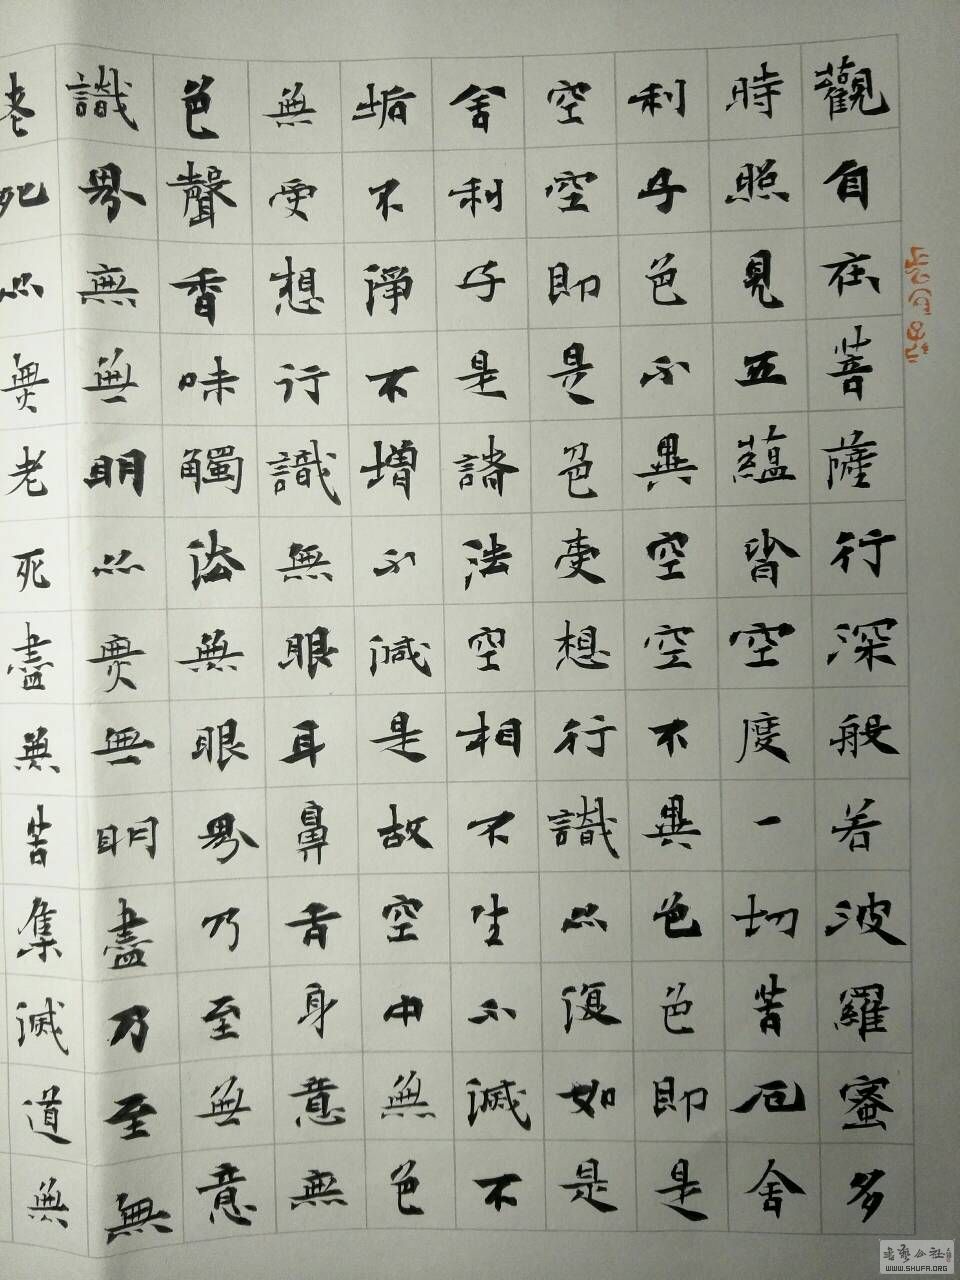 觀自在菩薩行深般若波羅蜜多
時照見五蘊皆空度一切苦厄舍
利子色不異空空不異色色即是
空空即是色受想行識亦復如是
舍利子是諸法空相不生不滅不
垢不淨不增不減是故空中無色
無受想行識無眼耳鼻舌身意無
色聲香味觸法無眼界乃至無意
識界無無明亦無無明盡乃至無
老死亦無老死盡無苦集滅道無
書藝公社
WWW.SHUFA.ORG